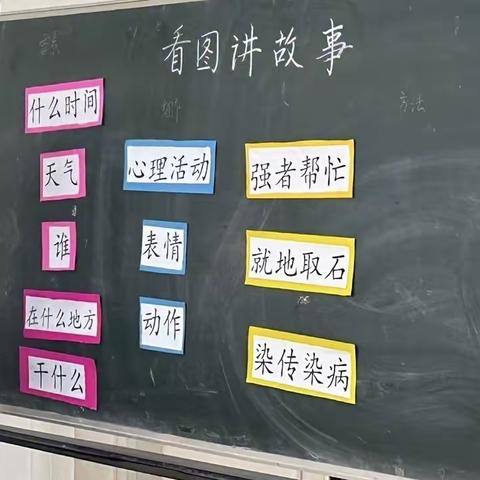 看图讲故事
什么时间
天气
谁
在什么地方
干什么
心理活动
表情
动作
强者帮忙
就地取石
染传染病
方法